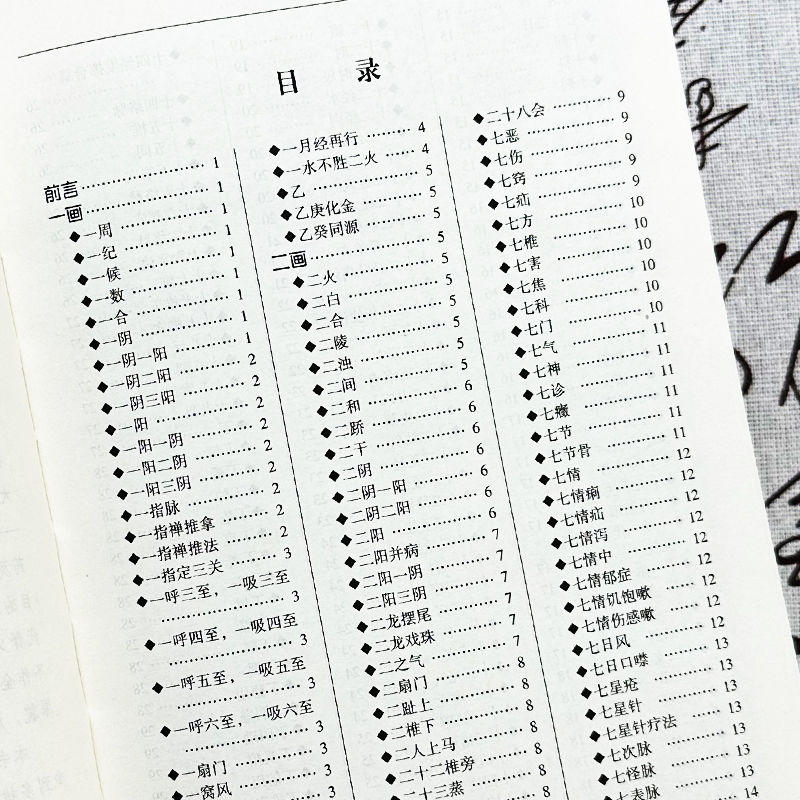 目 录
前言 1
一画 1
◆一周 1
◆一纪 1
◆一候 1
◆一数 1
◆一合 1
◆一阴 1
◆一阴一阳 1
◆一阴二阳 2
◆一阴三阳 2
◆一阳 2
◆一阳一阴 2
◆一阳二阴 2
◆一阳三阴 2
◆一指脉 2
◆一指禅推拿 2
◆一指禅推法 2
◆一指定三关 3
◆一呼三至，一吸三至
3
◆一呼四至，一吸四至
3
◆一呼五至，一吸五至
3
◆一呼六至，一吸六至
3
◆一扇门 3
◆一窝风 3
◆一月经再行 4
◆一水不胜二火 4
◆乙 5
◆乙庚化金 5
◆乙癸同源 5
二画 5
◆二火 5
◆二白 5
◆二合 5
◆二陵 5
◆二浊 5
◆二间 5
◆二和 6
◆二跻 6
◆二干 6
◆二阴 6
◆二阴一阳 6
◆二阴二阳 6
◆二阳 6
◆二阳并病 7
◆二阳一阴 7
◆二阳三阴 7
◆二龙摆尾 7
◆二龙戏珠 7
◆二之气 7
◆二扇门 8
◆二趾上 8
◆二椎下 8
◆二人上马 8
◆二十二椎旁 8
◆二十三蒸 8
◆二十八会 9
◆七恶 9
◆七伤 9
◆七窍 9
◆七疝 9
◆七方 10
◆七椎 10
◆七害 10
◆七焦 10
◆七科 10
◆七门 10
◆七气 11
◆七神 11
◆七诊 11
◆七癥 11
◆七节 11
◆七节骨 11
◆七情 12
◆七情痢 12
◆七情疝 12
◆七情泻 12
◆七情中 12
◆七情郁症 12
◆七情饥饱嗽 12
◆七情伤感嗽 12
◆七日风 12
◆七日口噤 13
◆七星疮 13
◆七星针 13
◆七星针疗法 13
◆七次脉 13
◆七怪脉 13
◆七表脉 14